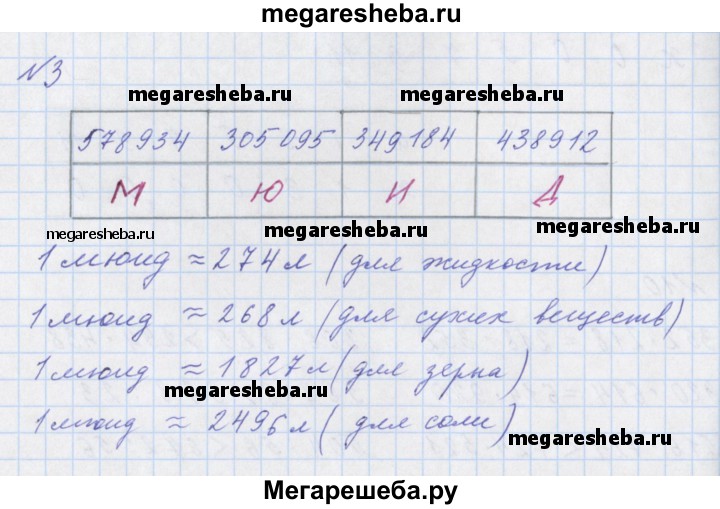 megaresheba.ru
№3
megaresheba.ru megaresheba.ru
578934 305095 349184 438912
М Ю И Д
megaresheba.ru megaresheba.ru
1 мюид ≈ 274 л (для жидкости)
1 мюид ≈ 268 л (для сухих веществ)
1 мюид ≈ 1827 л (для зерна)
megaresheba.ru
1 мюид ≈ 2496 л (для соли)
megaresheba.ru
Мегарешеба.ру